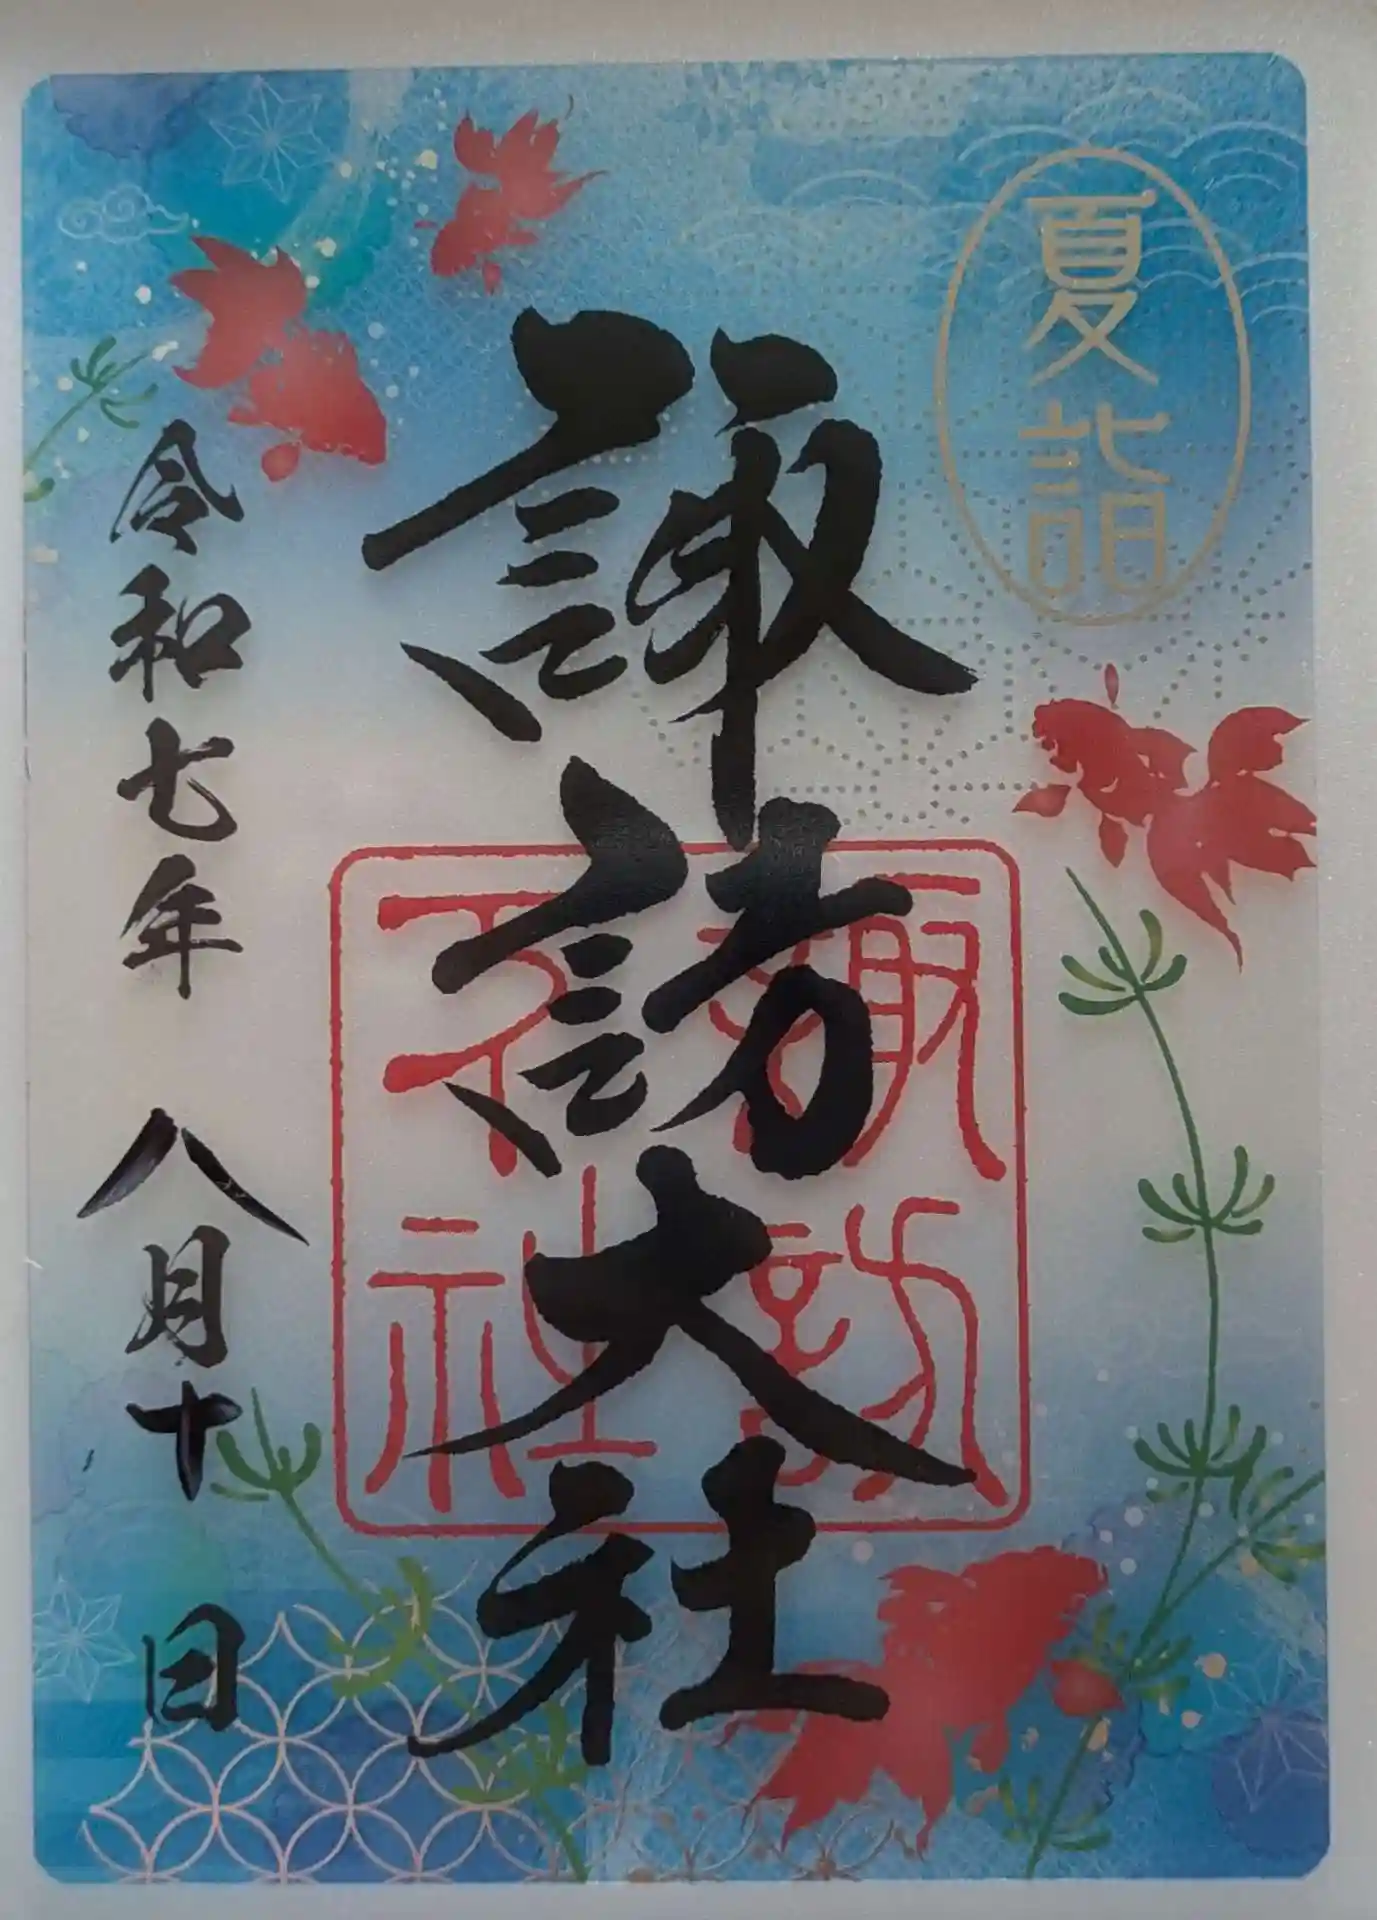 夏詣
諏訪大社
諏訪
大社
令和七年 八月十 日